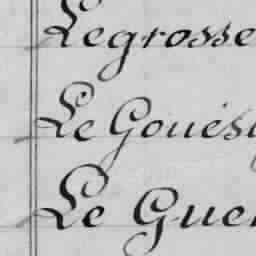 Legrosse
Le Gouës
Le Guer